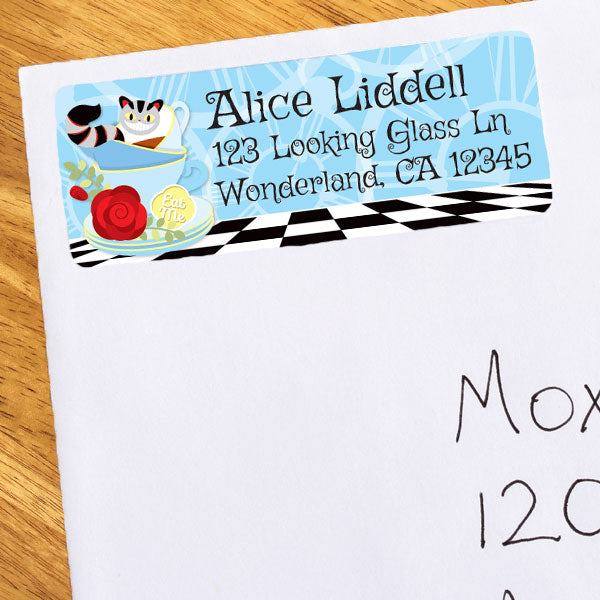 Alice Liddell
123 Looking Glass Ln
Wonderland, CA 12345
Eat
Me